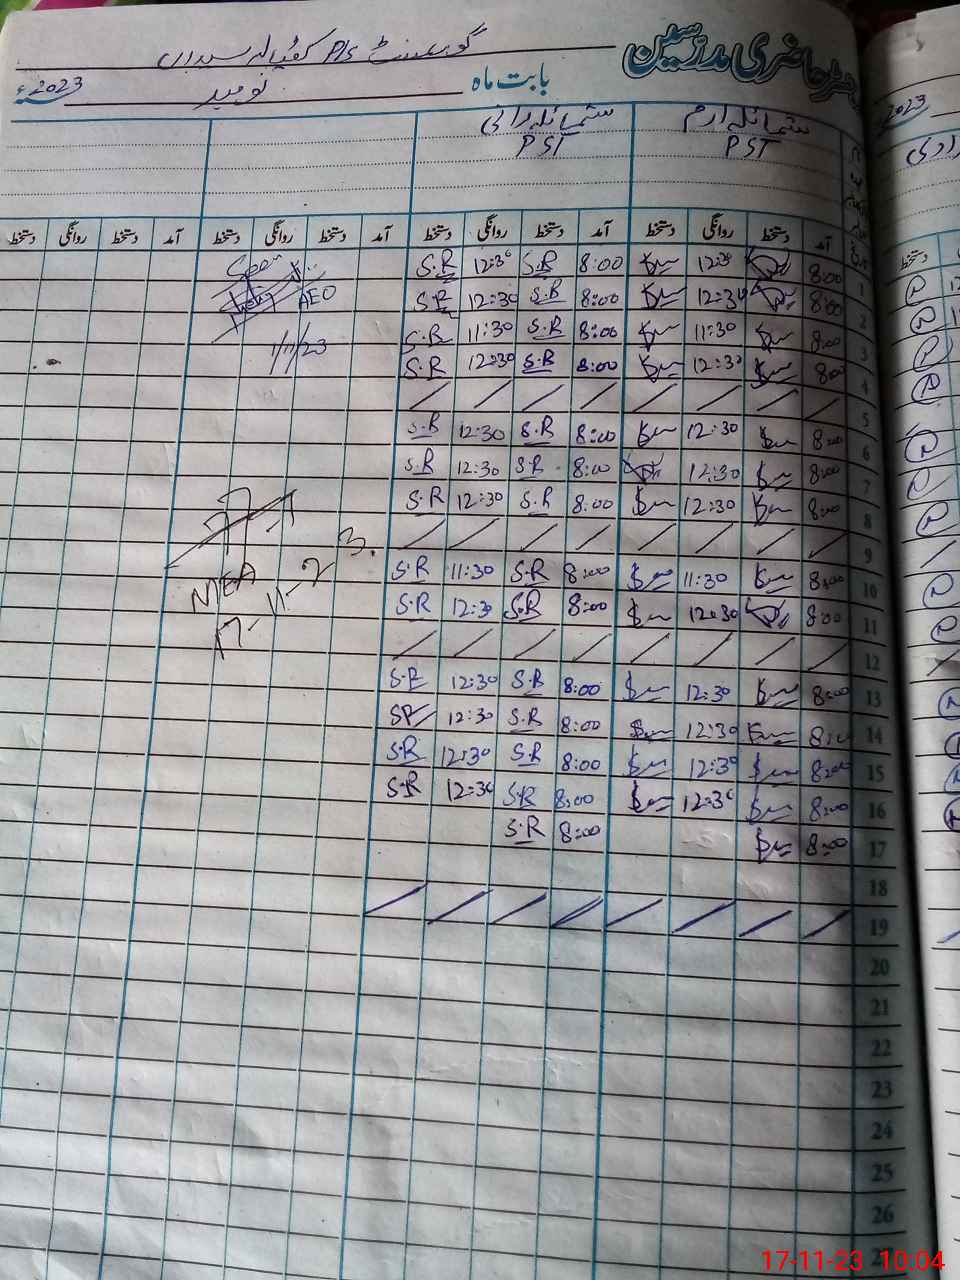 رجسٹر حاضری مدرسین
گورنمنٹ P/S
بابت ماہ نومبر 2023ء
2023
شمائلہ ارم شمائلہ رانی
PST PST
آمد دستخط روانگی دستخط آمد دستخط روانگی دستخط آمد دستخط روانگی دستخط آمد دستخط روانگی دستخط
دستخط
1 8:00 12:30 8:00 S.R 12:30 S.R
2 8:00 12:30 8:00 S.R 12:30 S.R AEO
3 8:00 11:30 8:00 S.R 11:30 S.R 1/11/23
4 8:00 12:30 8:00 S.R 12:30 S.R
5
6 8:00 12:30 8:00 S.R 12:30 S.R
7 8:00 12:30 8:00 S.R 12:30 S.R
8 8:00 12:30 8:00 S.R 12:30 S.R
9
10 8:00 11:30 8:00 S.R 11:30 S.R
11 8:00 12:30 8:00 S.R 12:30 S.R
MEA
17-11-23.
12
13 8:00 12:30 8:00 S.R 12:30 S.R
14 8:00 12:30 8:00 S.R 12:30 SR
15 8:00 12:30 8:00 S.R 12:30 S.R
16 8:00 12:30 8:00 S.R 12:30 S.R
17 8:00 8:00 S.R
18
19
20
21
22
23
24
25
26
17-11-23 10:04